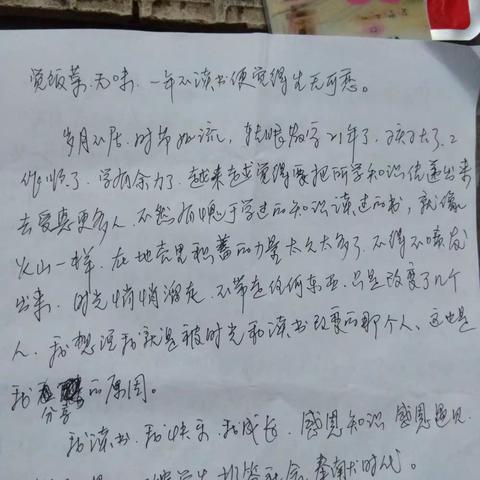 觉饭菜无味，一年不读书便觉得生无可恋。
岁月不居，时节如流，转眼教学21年了，孩大了，工
作顺了，学有余力了，越来越觉得要把所学知识传递出来
去受惠更多人，不然有愧于学过的知识读过的书，就像
火山一样，在地底里积蓄的力量太久太多了，不得不喷发
出来，时光悄悄溜走，不带走任何东西，只是改变了几个
人，我想说我就是被时光和读书改变的那个人，这也是
我分享的原因。
我读书，我快乐，我成长，感恩知识 感恩遇见，